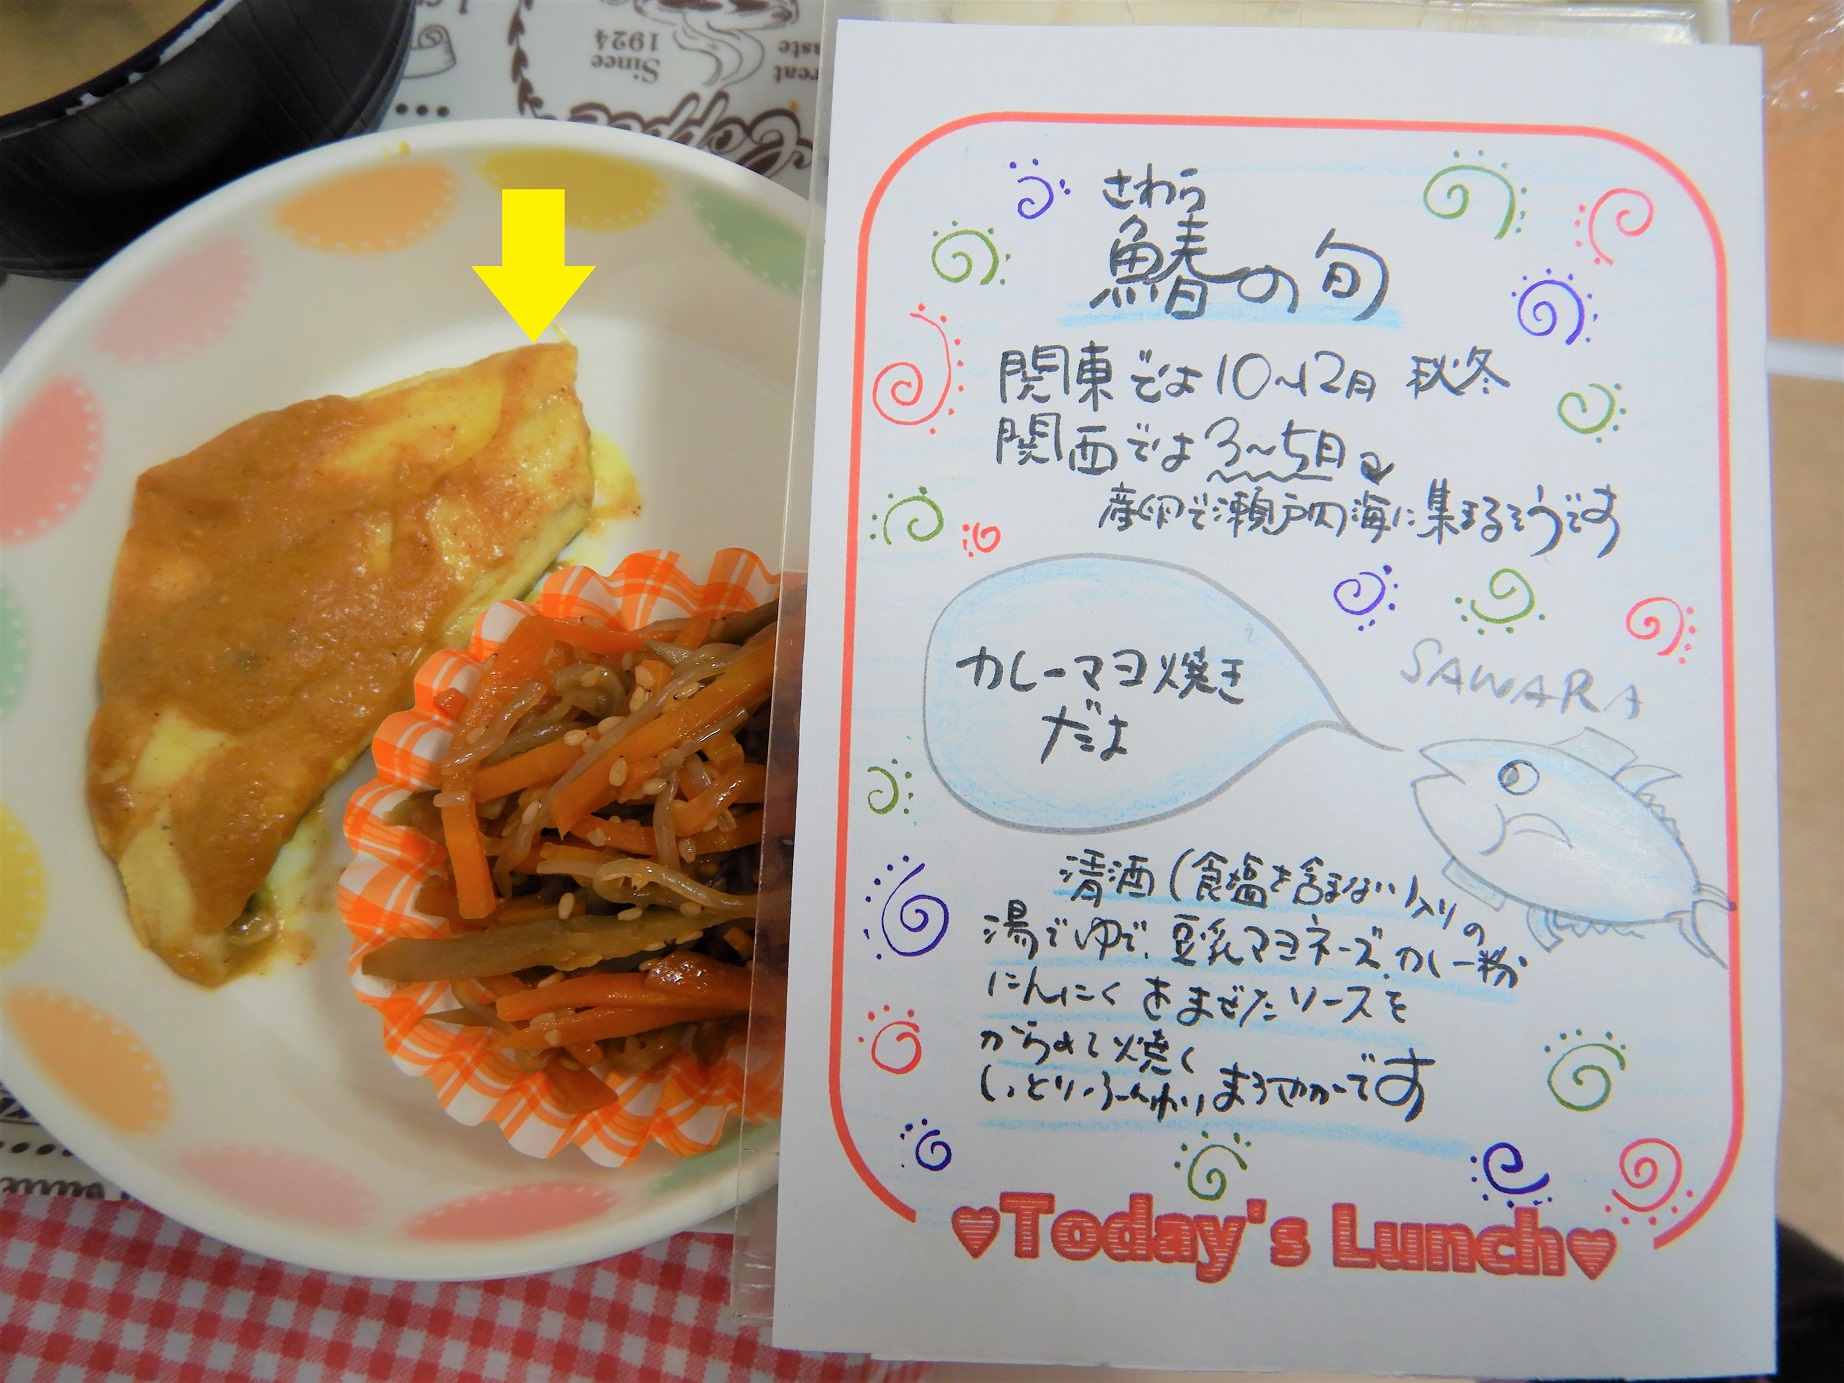 Since
1924
Coffee
さわら
鰆の旬
関東では10~12月 秋冬
関西では3~5月
産卵で瀬戸内海に集まるそうです
カレーマヨ焼き
だよ
SAWARA
清酒(食塩を含まない)入りの
湯でゆで、豆乳マヨネーズ、カレー粉
にんにくをまぜたソースを
からめて焼く
しっとり・ふんわりまろやかーです
♥Today's Lunch♥